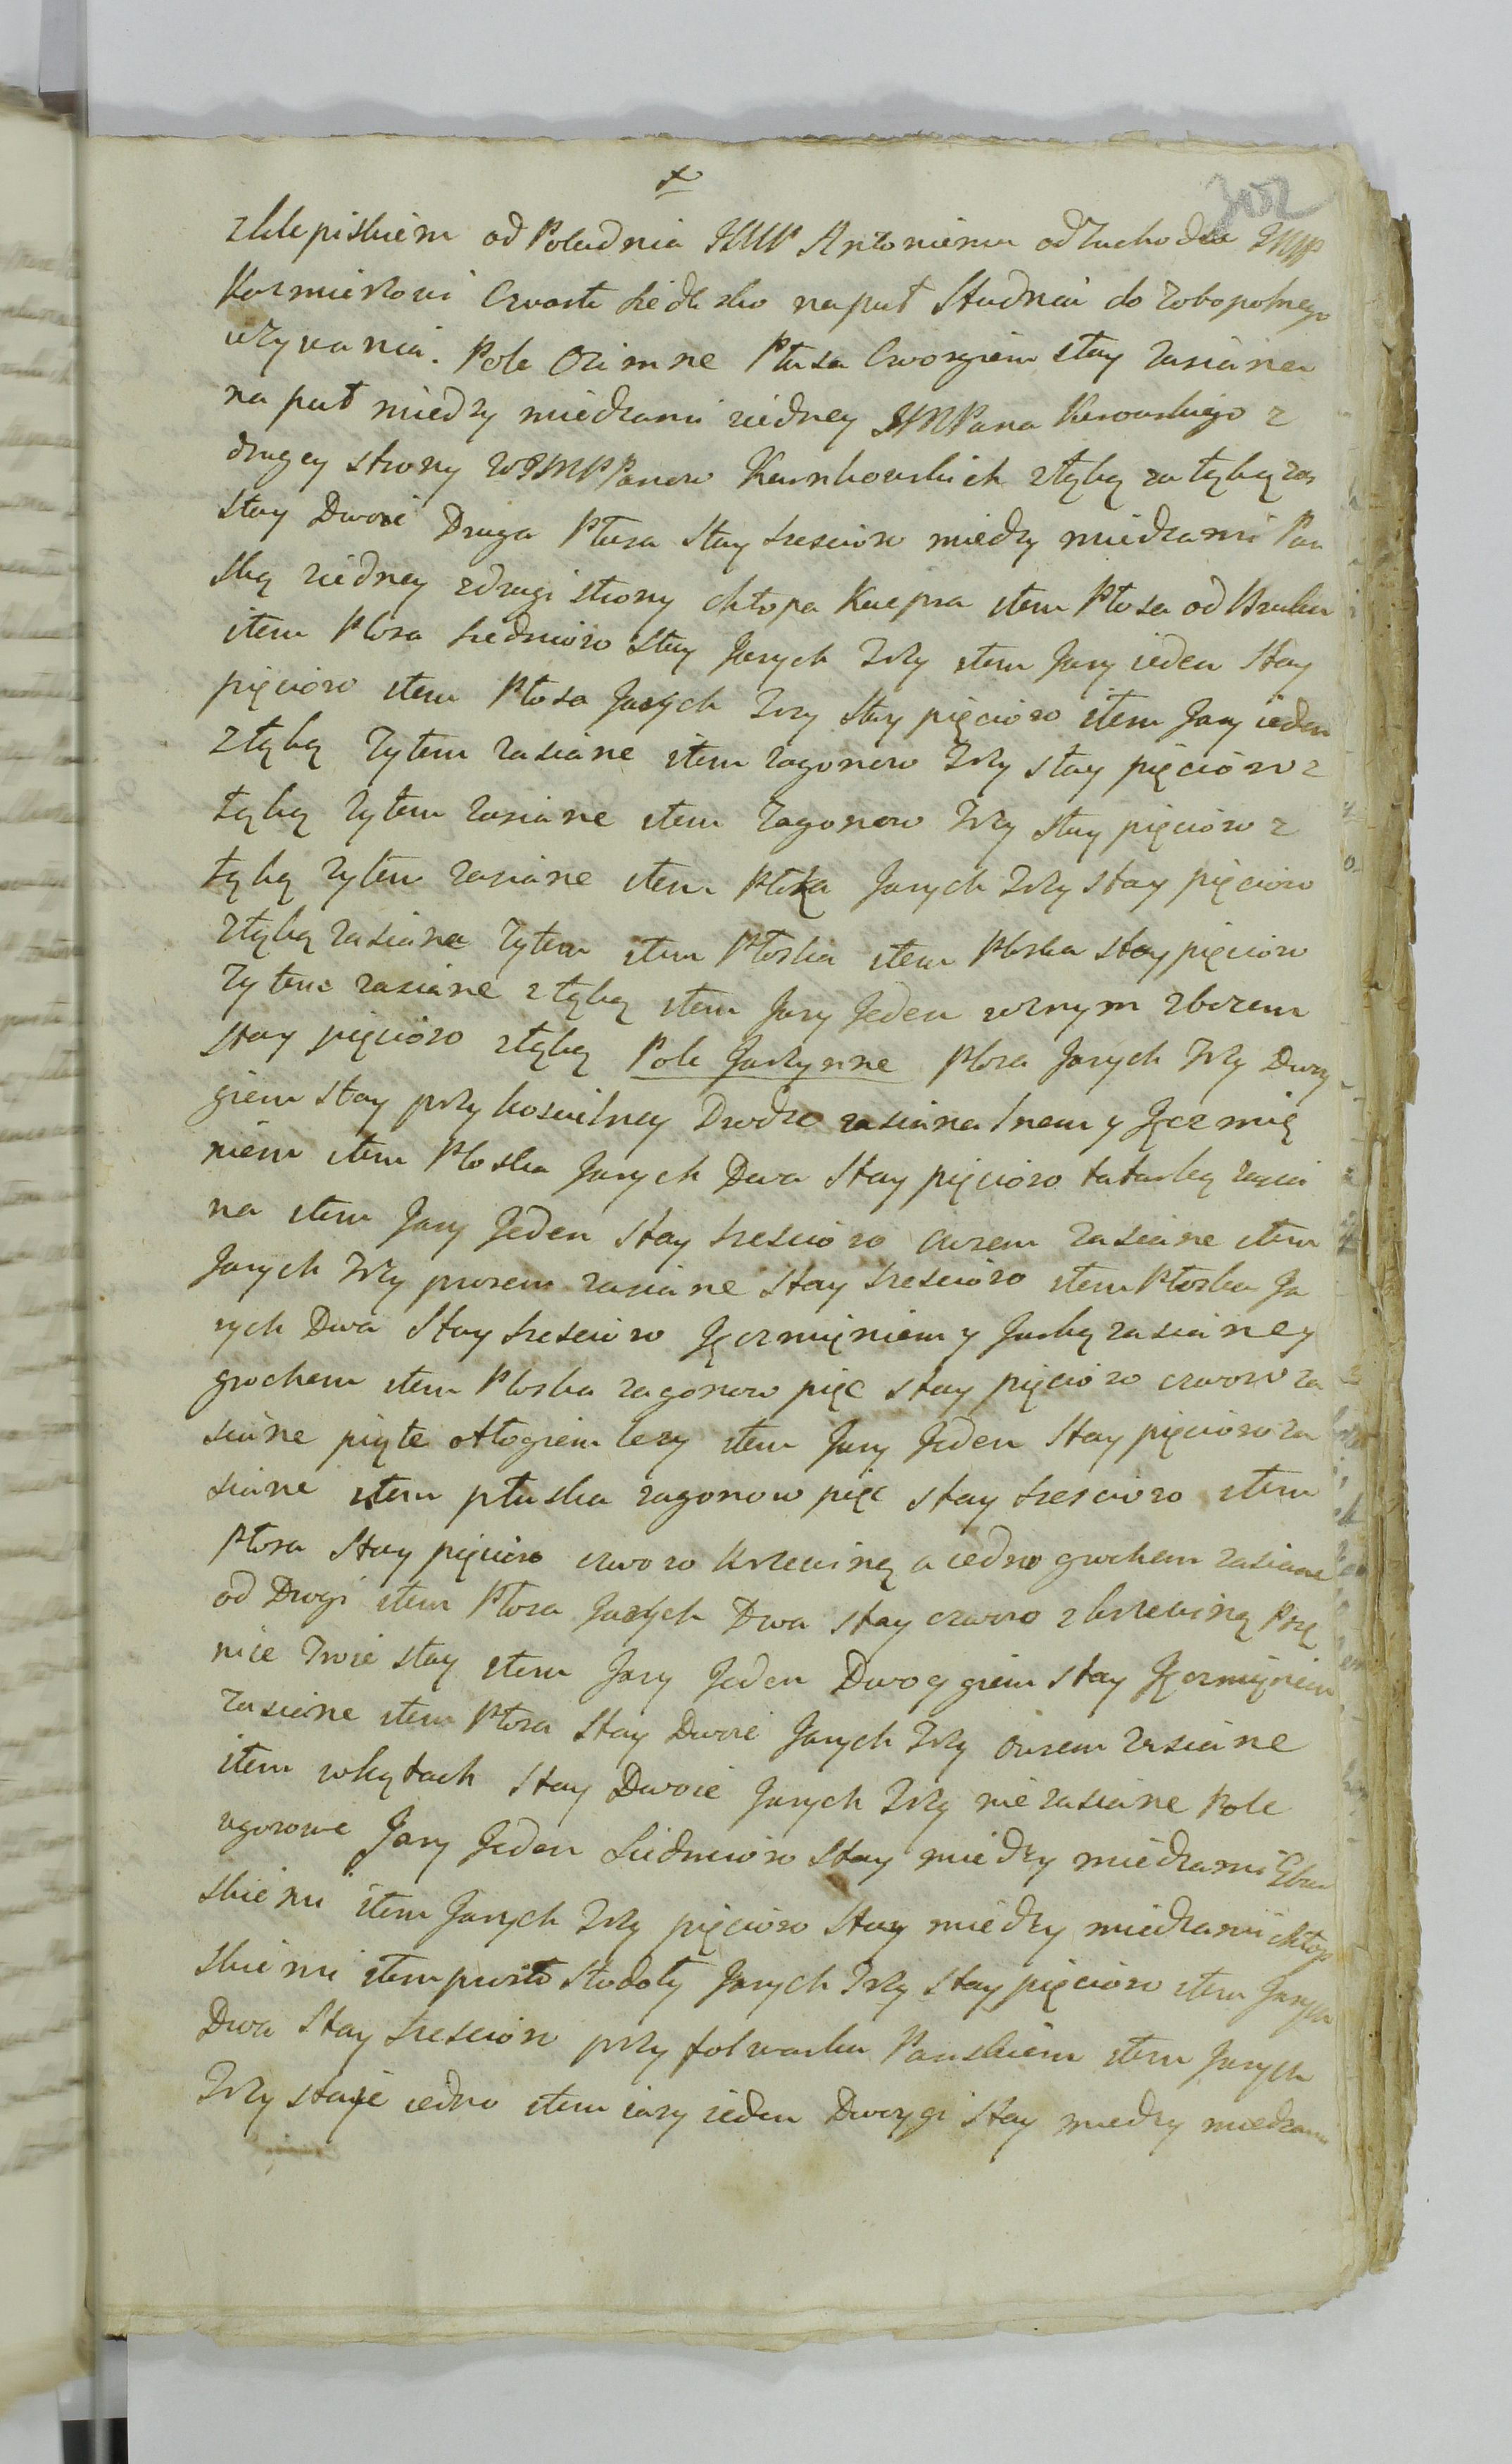 302
zklepiskiem od Południa JMP Antoniemu od Zachodu JMP
Kazmierzowi Czwarte siedlisko na puł Studnia do zobopolnego
uzywania. Pole Ozimne Płusa Cworgiem stay zasiane
na puł miedzy miedzami ziedney JMPana Kerowskiego z
drugey strony WJMPPanow Karnkowskich złąką za łąką zas
stay Dwoie Druga Płusa Stay szescioro miedzy miedzami Pan
ską ziedney zdrugi strony chłopa Kacpra item Płosa od
item Płosa siedmioro stay Jarych Trzy item Jary ieden Stay
pięcioro item Płosa Jarych Trzy Stay pięcioro item Jary ieden
złąką Zytem zasiane item zagonow Trzy stay pięcioro z
łąką Zytem zasiane item Zagonow Trzy Stay pięcioro z
łąką zytem zasiane item Płoza Jarych Trzy stay pięcioro
złąką zasiane Zytem item Płoska item Płoska stay pięcioro
Zytem zasiane złąką item Jary Jeden roznym zborem
stay pięcioro złąką Pole Jarzynne Płosa Jarych Trzy Dwoy
giem stay przy koscielney Drodze zasiana lnem y Jęcemię
niem item Płoska Jarych Dwa Stay pięcioro tatarką zasia
na item Jary Jeden Stay szescioro owsem zasiane item
Jarych Trzy prosem zasiane Stay szescioro item Płoska Ja
rych Dwa Stay szescioro Jęczmięniem y Jarką zasiane y
grochem item Płoska zagonow pięc stay pięcioro czworo za
siane piąte odłogiem lezy item Jary Jeden Stay pięcioro za
siane item płuska zagonow pięc stay szescioro item
Płosa Stay pięcioro czworo krzewiną a iedno grochem zasiane
od Drogi item Płosa Jarych Dwa stay czworo zkrzewiną Psze
nice Troie stay item Jary Jeden Dwoygiem stay Jęczmięniem
Zasiane item Płosa Stay Dwoie Jarych Trzy owsem zasiane
item wkątach Stay Dwoie Jarych Trzy nie zasiane Pole
ugorowe Jary Jeden Siedmioro Stay miedzy miedzami
skiemi item Jarych Trzy pięcioro Stay miedzy miedzami chłop
skiemi item prosto Stodoły Jarych Trzy Stay pięcioro item Jarych
Dwa Stay szescioro przy folwarku Panskiem item Jarych
Trzy staje iedno item iary ieden Dwoygi Stay miedzy miedzami